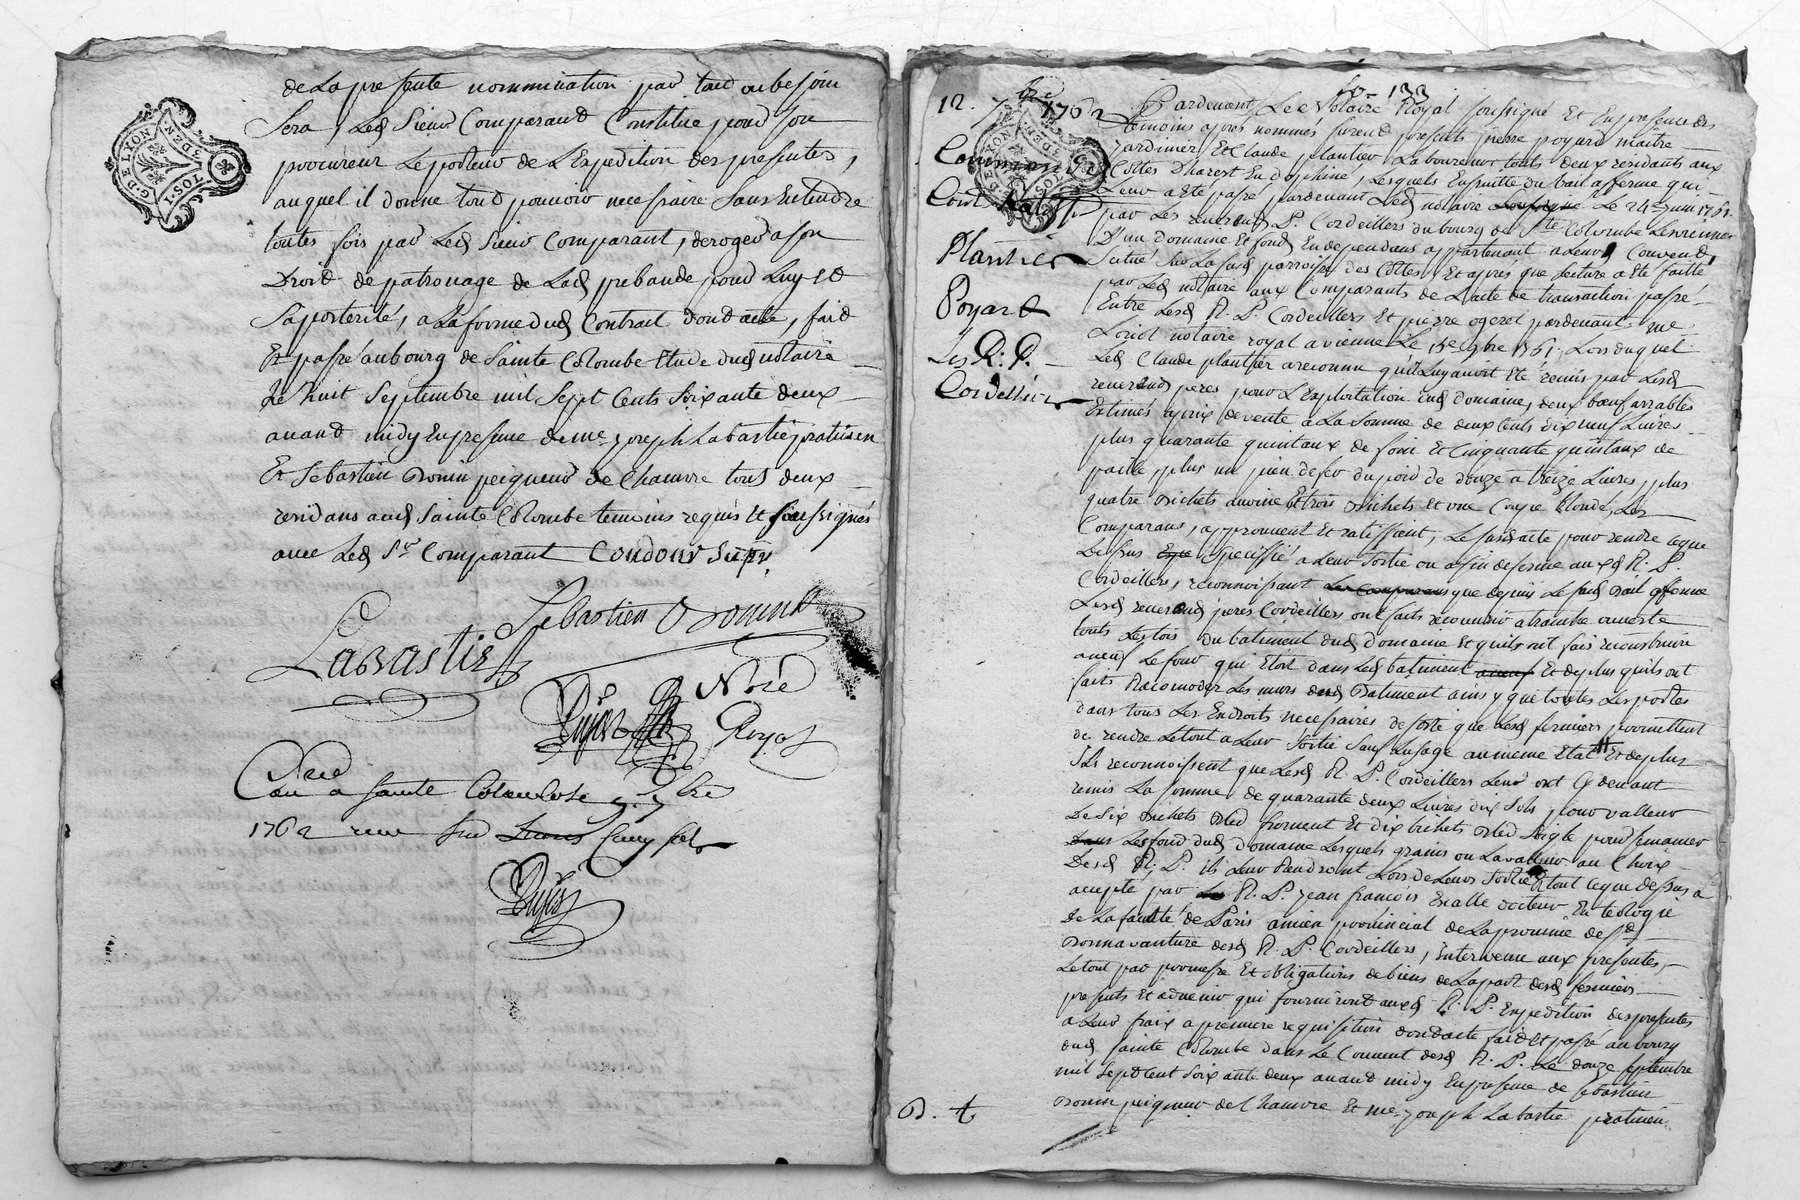 de La presente nommination par tout ou besoin
Sera, Led Sieur Comparant Constitue pour son
procureur Le porteur de L'Expedition des presentes,
auquel il donne tout pouvoir necessaire Sans Entendre
toutes fois par Led Sieur Comparant, deroger a son
Droit de patronage de Lad prebande pour Luy Et
Sa posterité, a La forme dud Contrat dont acte, fait
Et passé au bourg de Sainte Colombe Etude dud notaire
Le huit Septembre mil Sept Cents Soixante deux
avant midy En presence de me joseph Labastie praticien
Et Sebastien Bonin peigneur de Chanvre tous deux
residans aud Sainte Colombe temoins requis Et soussignés
avec Led Sr Comparant
G. DE LYON
Sebastien Bonin
LABASTIE
Nore
Royal
a Sainte Colombe
1762 reçu
12. 7bre 1762
fo. 133
Plantier
Poyard
Les R. P.
Cordelliers
Pardevant Le Notaire Royal soussigné Et En presence des
temoins apres nommés furent presents pierre poyard maitre
jardinier Et Claude plantier Laboureur touts deux residants aux
Cottes Dharest En Dophiné, Lesquels Ensuitte du bail a fferme qui
Leur a Eté passé pardevant Led notaire Le 24 juin 1761.
par Les reverends P. Cordeillers du bourg de Ste Colombe Les vienne
D'un domaine Et fonds En dependans appartenant a Leurs Couvend,
Situé Sur La sud parroisse des Cottes, Et apres que lecture a Eté faitte
par Led notaire aux Comparants de L'acte de transaction passé
Entre Lesd R. P. Cordeillers Et pierre ogeret pardevant me
Loriot notaire royal a vienne Le 15e 1761, Lors duquel
Led Claude plantier a reconnu qu'il Luy avoit Eté remis par Lesd
reverends peres pour L'exploitation dud domaine, deux boeufs arrables
Estimés a prix de vente a La Somme de deux Cents dix neuf Livres
plus quarante quintaux de foin Et Cinquante quintaux de
paille, plus un pien de fer du poid de douze a treize Livres, plus
quatre bichets avoine Et trois bichets et une Coupe blonde, Les
Comparans, approuvent Et ratiffient, Le susd acte pour rendre ce que
Dessus Specifié a Leur Sortie ou a fin de ferme auxd R. P.
Cordeillers, reconnoissant que depuis Le susd Bail a fferme
Lesd reverends peres Cordeillers ont faits recouvrir a tranche ouverte
touts Les tois du batiment dud domaine Et qu'ils ont fais reconstruire
a neuf Le four qui Etoit dans Led batiment Et de plus qu'ils ont
faits Racomoder Les murs dud Batiment ainsy que toutes Les portes
dans tous Les Endroits necessaires de sorte que Lesd fermiers promettent
de rendre Le tout a Leur Sortie Sauf Lusage au meme Etat Et de plus
Ils reconnoissent que Lesd R. P. Cordeillers Leur ont Cy devant
remis La somme de quarante deux Livres dix Sols pour valleur
De Six bichets Bled froment Et dix bichets Bled Seigle pour semancer
Les fond dud Domaine Lesquels grains ou La valleur au Choix
Desd R. P. ils Leur Rendront Lors de Leurs Sortie Et tout ce que dessus a
accepté par R. P. jean françois docteur En teologie
De La faculté de Paris ancien provincial de La province de St
Bonnavanture desd R. P. Cordeillers, Intervenu aux presentes,
Le tout par promesse Et obligations de biens de La part desd fermiers
presents Et advenir qui fourniront auxd R. P. Expedition des presentes
a Leur fraix a premiere requisition dont acte fait Et passé au bourg
dud Sainte Colombe dans Le Couvent desd R. P. Le douze septembre
mil Sept Cent Soixante deux avant midy En presence de Sebastien
Bonin peigneur de Chanvre Et me joseph Labastie praticien